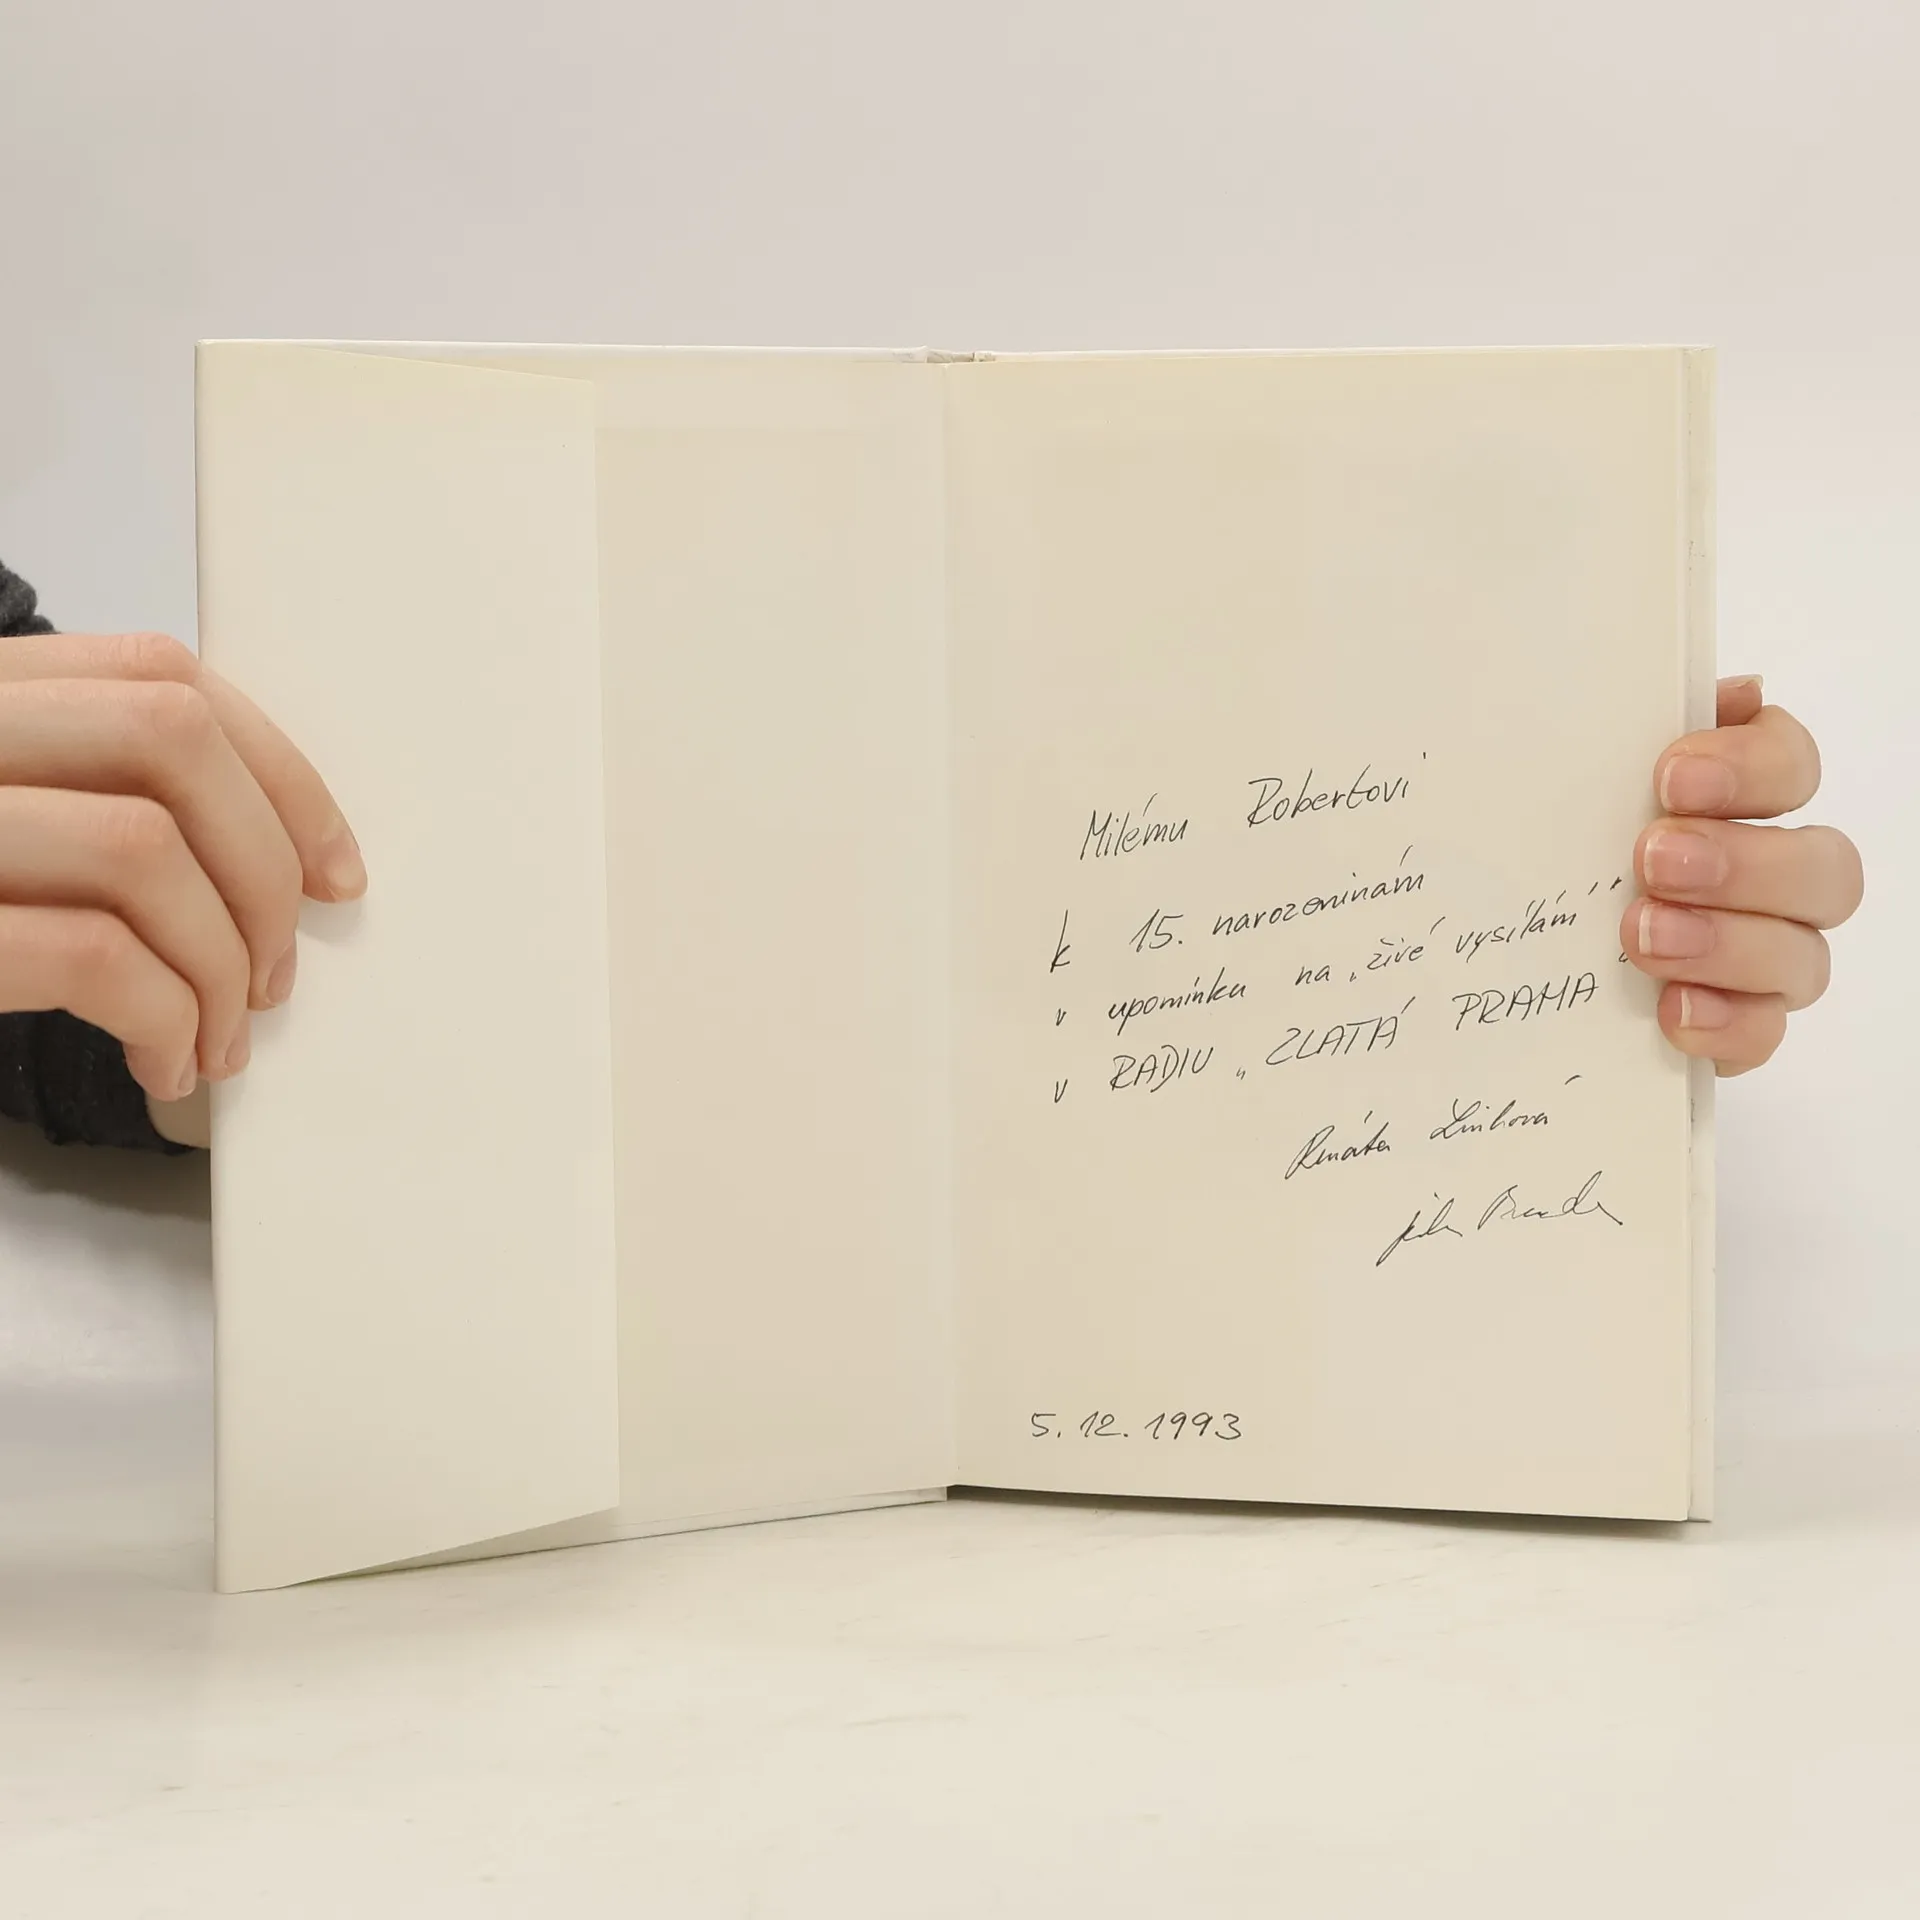 Milému Robertovi
k 15. narozeninám
v upomínku na „živé vysílání"
v RADIU „ZLATÁ PRAHA"
Renáta
5. 12. 1993